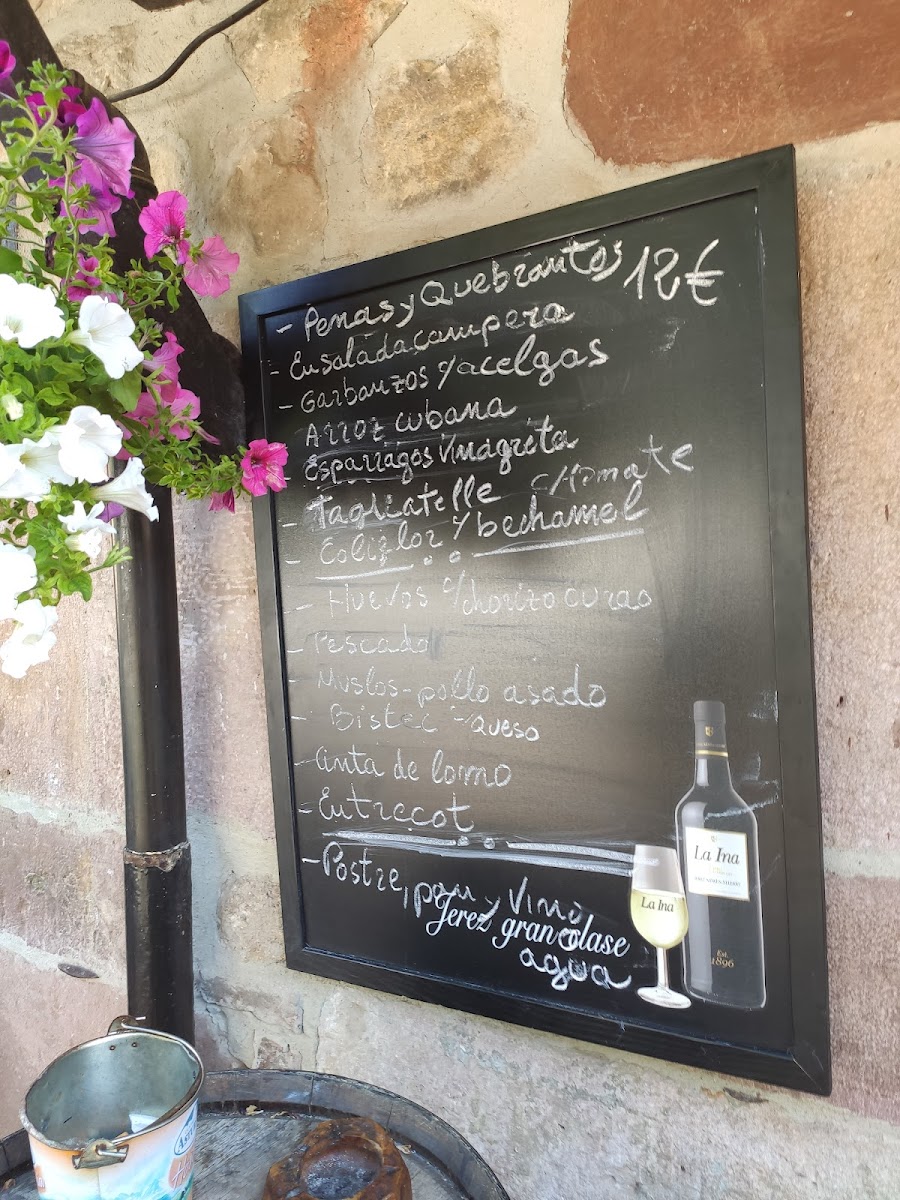 - Penas y Quebrantos 12€
- Ensalada campera
- Garbanzos c/acelgas
Arroz cubana
Esparragos Vinagreta
- Tagliatelle c/tomate
- Coliflor c/bechamel
- Huevos c/chorizo curao
- Pescado
- Muslos - pollo asado
- Bistec - queso
- Cinta de lomo
- Entrecot
- Postre, pan y Vino
Jerez gran clase
o agua
La Ina
La Ina
Est.
1896